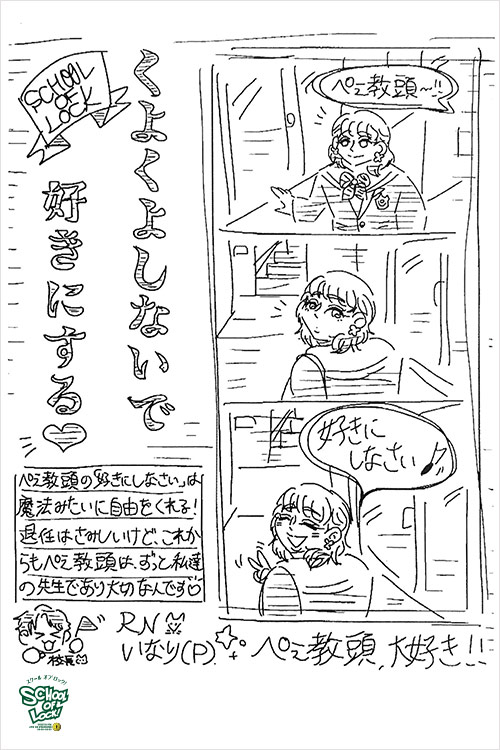 SCHOOL
OF
LOCK
くよくよしないで
好きにする♡
ぺえ教頭〜!!
好きに
しなさい♪
ぺえ教頭の「好きにしなさい」は
魔法みたいに自由をくれる!
退任はさみしいけど、これか
らもぺえ教頭は、ずっと私達
の先生であり大切なんです♡
校長
RN
いなり(P).
ぺえ教頭,大好き!!
スクール オブ ロック!
SCHOOL
OF
LOCK!